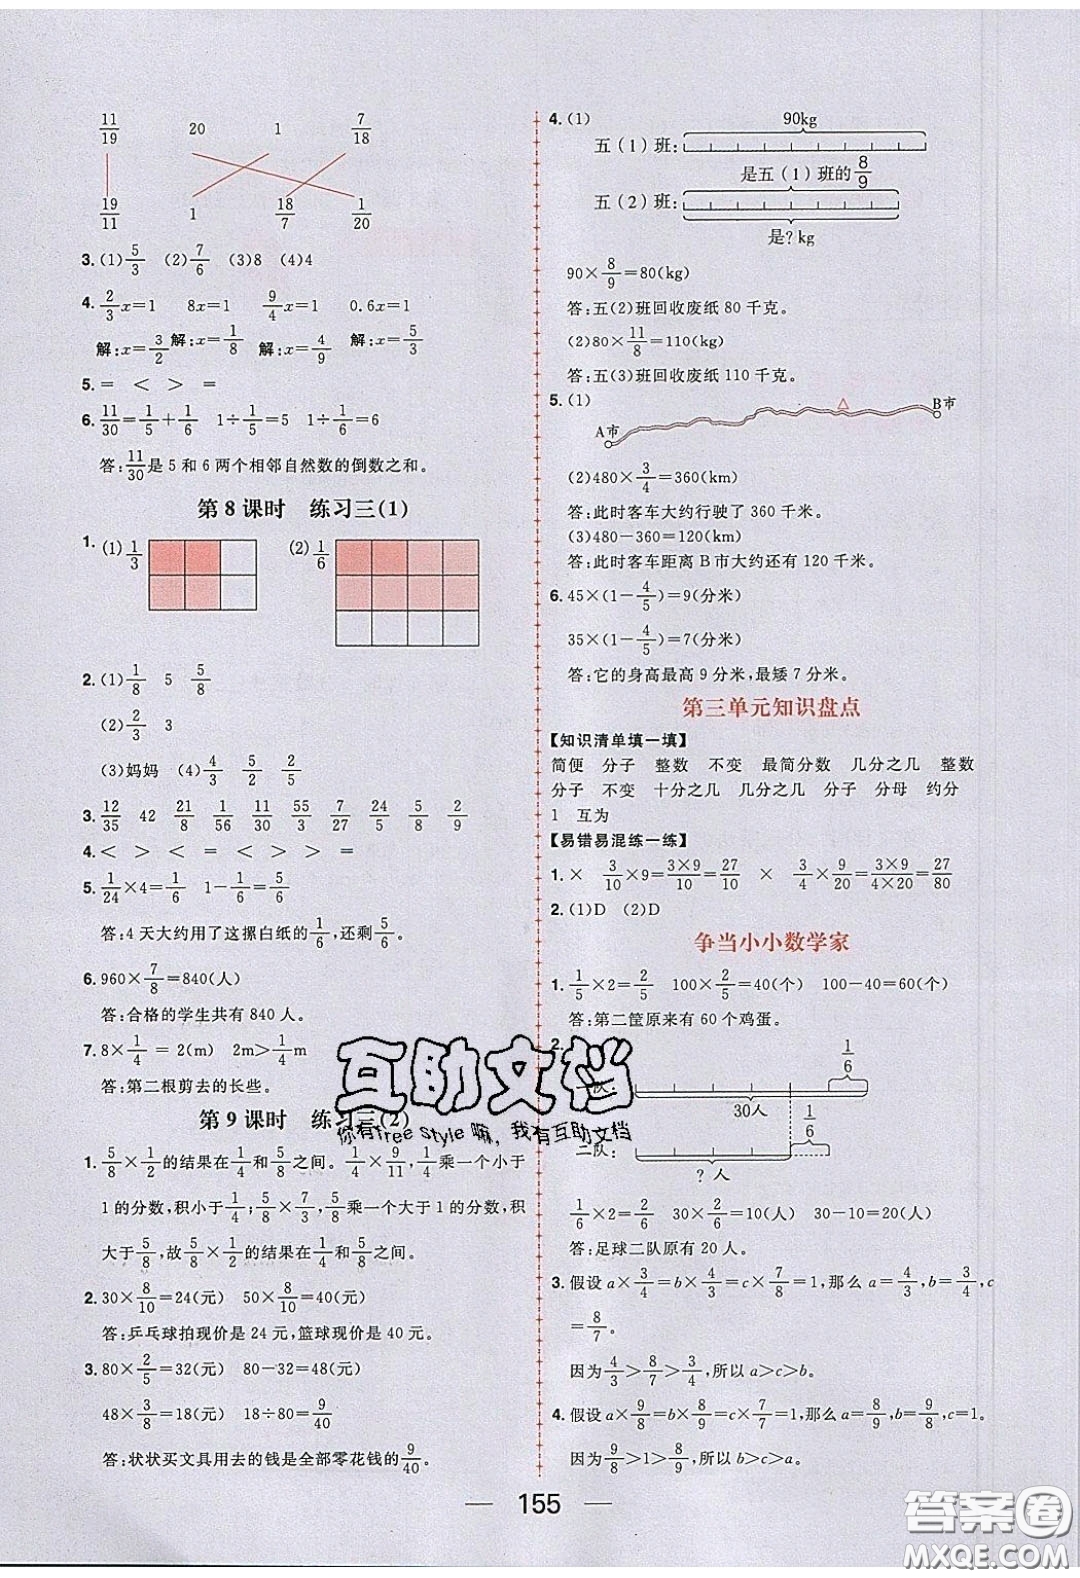 11/19 20 1 7/18
19/11 1 18/7 1/20
3.(1)5/3 (2)7/6 (3)8 (4)4
4. 2/3x=1 8x=1 9/4x=1 0.6x=1
解:x=3/2 解:x=1/8 解:x=4/9 解:x=5/3
5. = < > =
6. 11/30=1/5+1/6 1÷1/5=5 1÷1/6=6
答:11/30是5和6两个相邻自然数的倒数之和。
第8课时 练习三(1)
1. (1)1/3 (2)1/6
2. (1)1/8 5 5/8
(2)2/3 3
(3)妈妈 (4)4/3 5/2 2/5
3. 12/35 42 21/8 1/56 11/30 55/3 7/27 5/24 5/8 2/9
4. < > < < > > =
5. 1/24×4=1/6 1-1/6=5/6
答:4天大约用了这摞白纸的1/6,还剩5/6。
6. 960×7/8=840(人)
答:合格的学生共有840人。
7. 8×1/4=2(m) 2m>1/4m
答:第二根剪去的长些。
第9课时 练习三(2)
1. 5/8×1/2的结果在1/4和5/8之间。1/4×9/11,1/4乘一个小于
1的分数,积小于1/4;5/8×7/3,5/8乘一个大于1的分数,积
大于5/8,故5/8×1/2的结果在1/4和5/8之间。
2. 30×8/10=24(元) 50×8/10=40(元)
答:乒乓球拍现价是24元,篮球现价是40元。
3. 80×2/5=32(元) 80-32=48(元)
48×3/8=18(元) 18÷80=9/40
答:状状买文具用去的钱是全部零花钱的9/40。
4. (1) 90kg
五(1)班:
是五(1)班的8/9
五(2)班:
是?kg
90×8/9=80(kg)
答:五(2)班回收废纸80千克。
(2)80×11/8=110(kg)
答:五(3)班回收废纸110千克。
5. (1)
A市 B市
(2)480×3/4=360(km)
答:此时客车大约行驶了360千米。
(3)480-360=120(km)
答:此时客车距离B市大约还有120千米。
6. 45×(1-4/5)=9(分米)
35×(1-4/5)=7(分米)
答:它的身高最高9分米,最矮7分米。
第三单元知识盘点
【知识清单填一填】
简便 分子 整数 不变 最简分数 几分之几 整数
分子 不变 十分之几 几分之几 分子 分母 约分
1 互为
【易错易混练一练】
1. × 3/10×9=3×9/10=27/10 × 3/4×9/20=3×9/4×20=27/80
2. (1)D (2)D
争当小小数学家
1. 1/5×2=2/5 100×2/5=40(个) 100-40=60(个)
答:第二筐原来有60个鸡蛋。
2.
1/6
队:
30人 1/6
二队:
?人
1/6×2=2/6 30×2/6=10(人) 30-10=20(人)
答:足球二队原有20人。
3. 假设a×3/4=b×4/3=c×7/8=1,那么a=4/3,b=3/4,c
=8/7。
因为4/3>8/7>3/4,所以a>c>b。
4. 假设a×9/8=b×8/9=c×7/7=1,那么a=8/9,b=9/8,c=1。
因为9/8>1>8/9,所以b>c>a。
155
互助文档
你有free style嘛,我有互助文档
答案圈
MXQE.COM